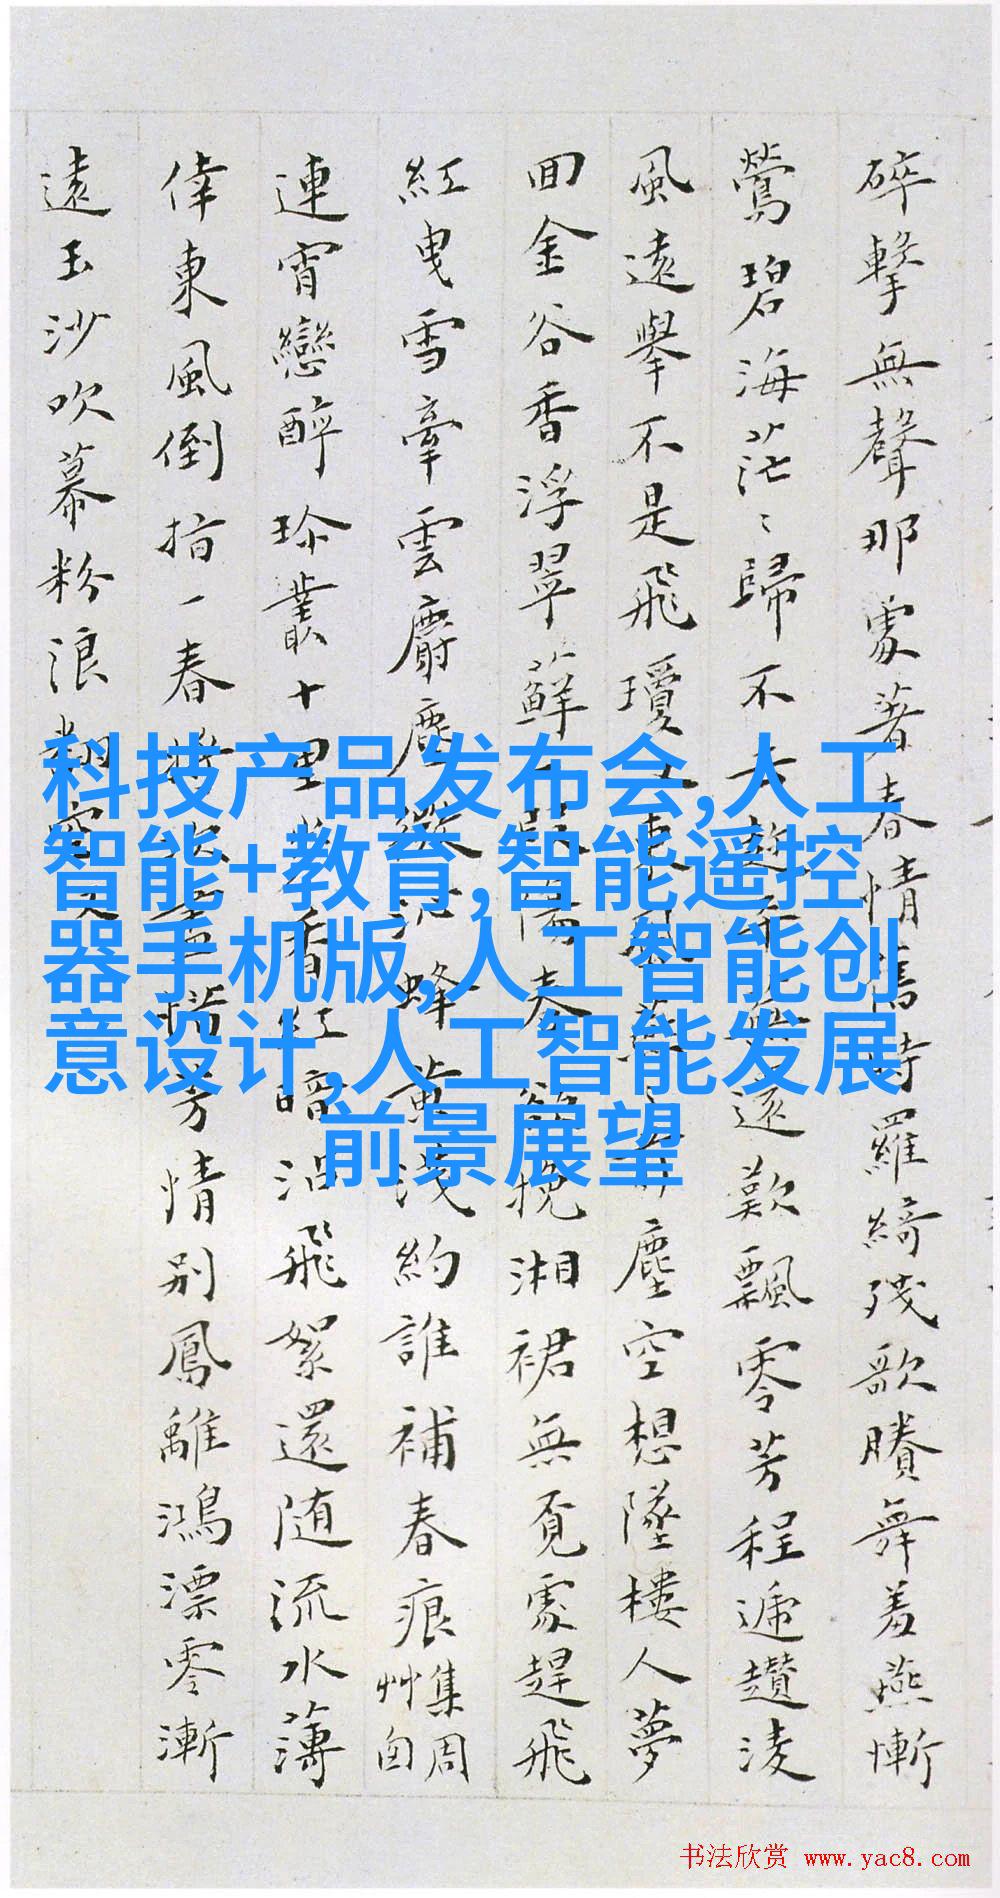 科技产品发布会,人工
智能+教育,智能遥控
器手机版,人工智能创
意设计,人工智能发展
前景展望
碎擊無聲那處著春情時羅綺残歌賸舞羞燕慚
鶯碧海茫〻歸不去無逐歎飄零芳程遞趲淩
風遠舉不是飛瓊東風塵空想墜樓人夢
回金谷香浮翠蘚陽春挽湘裙無覓處趕飛
紅曳雪牽雲麝塵蜂黄淺約誰補春痕集周
連宵戀醉珍叢十里香紅暗沾飛絮還随流水薄
倖東風倒指一春將次芳情别鳳離鴻漂零漸
遠玉沙吹幕粉浪翻空
书法欣赏 www.yac8.com